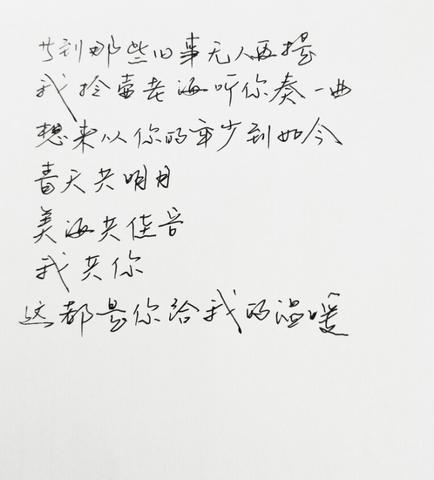 到那些旧事无人再提
我拎壶老酒听你奏一曲
想来从你的年少到如今
青天共明月
美酒共佳音
我共你
这都是你给我的温暖